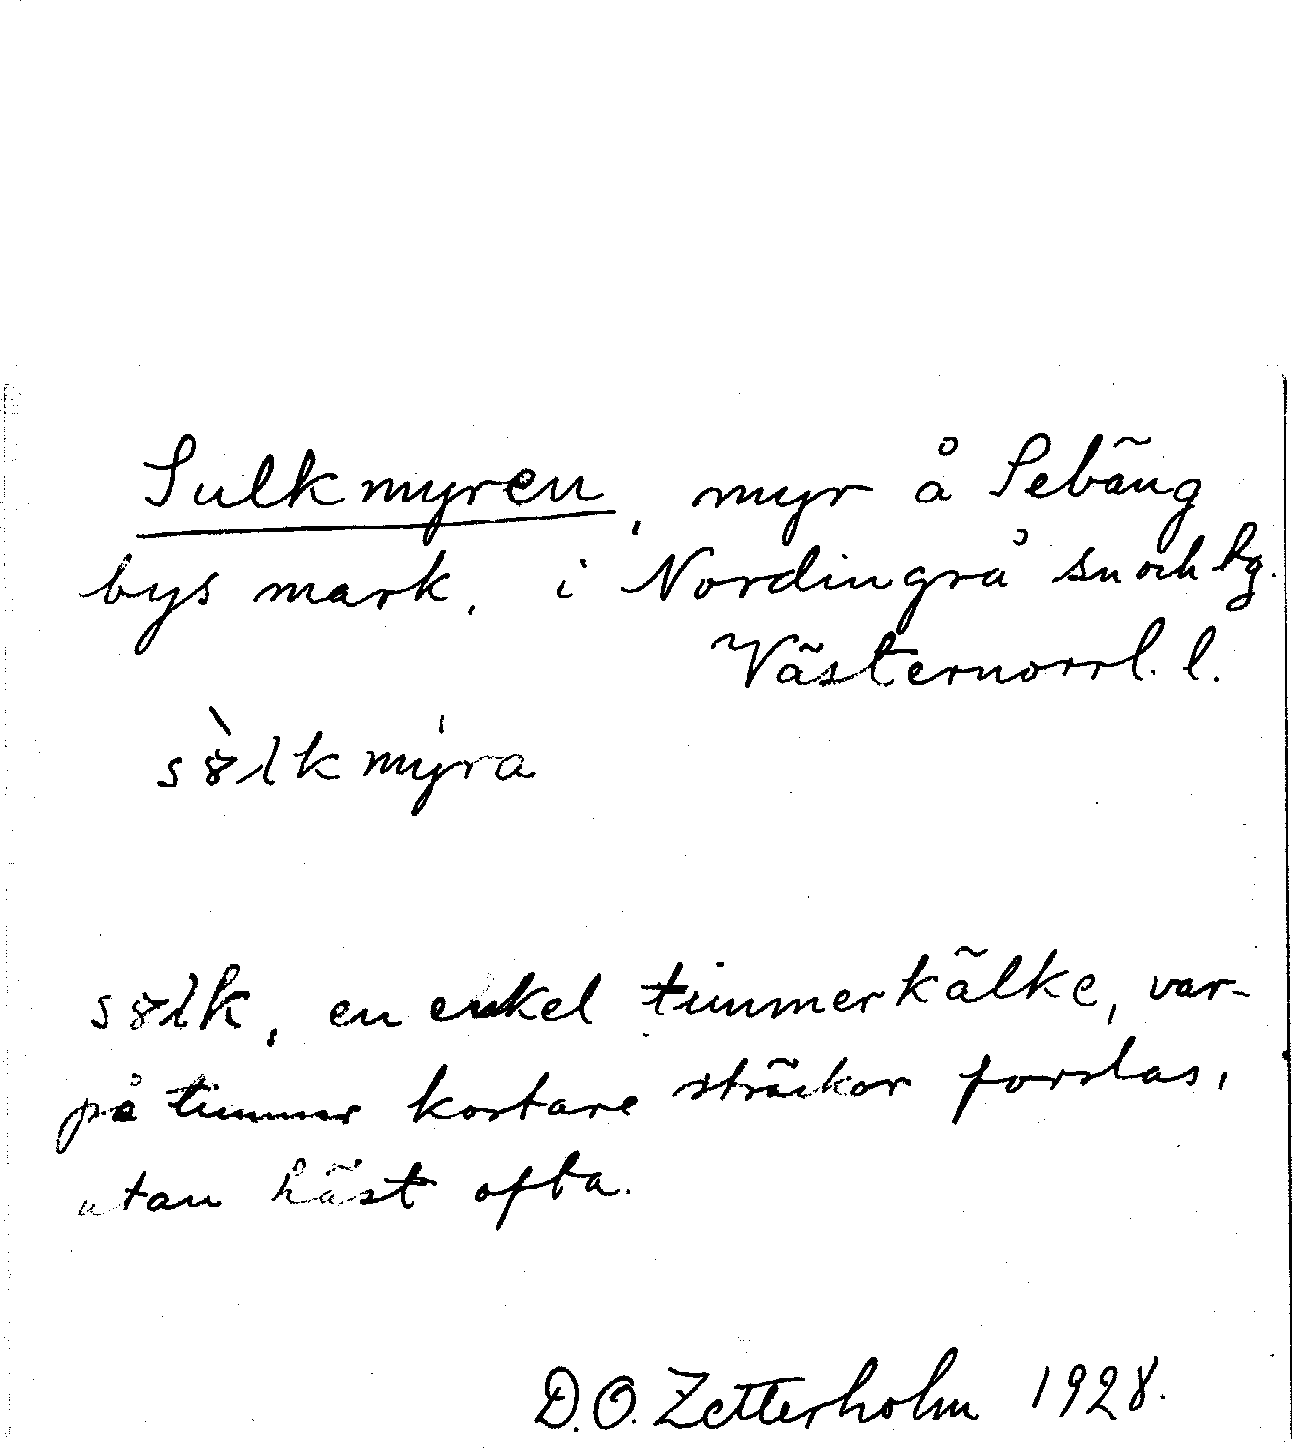 Sulkmyren, myr å Sebäng
bys mark, i Nordingrå sn och tg.
Västernorrl. l.
sȣ̀lkmýra
sȣlk, en enkel timmerkälke, var-
på timmer kortare sträckor forslas,
utan häst ofta.
D.O. Zetterholm 1928.